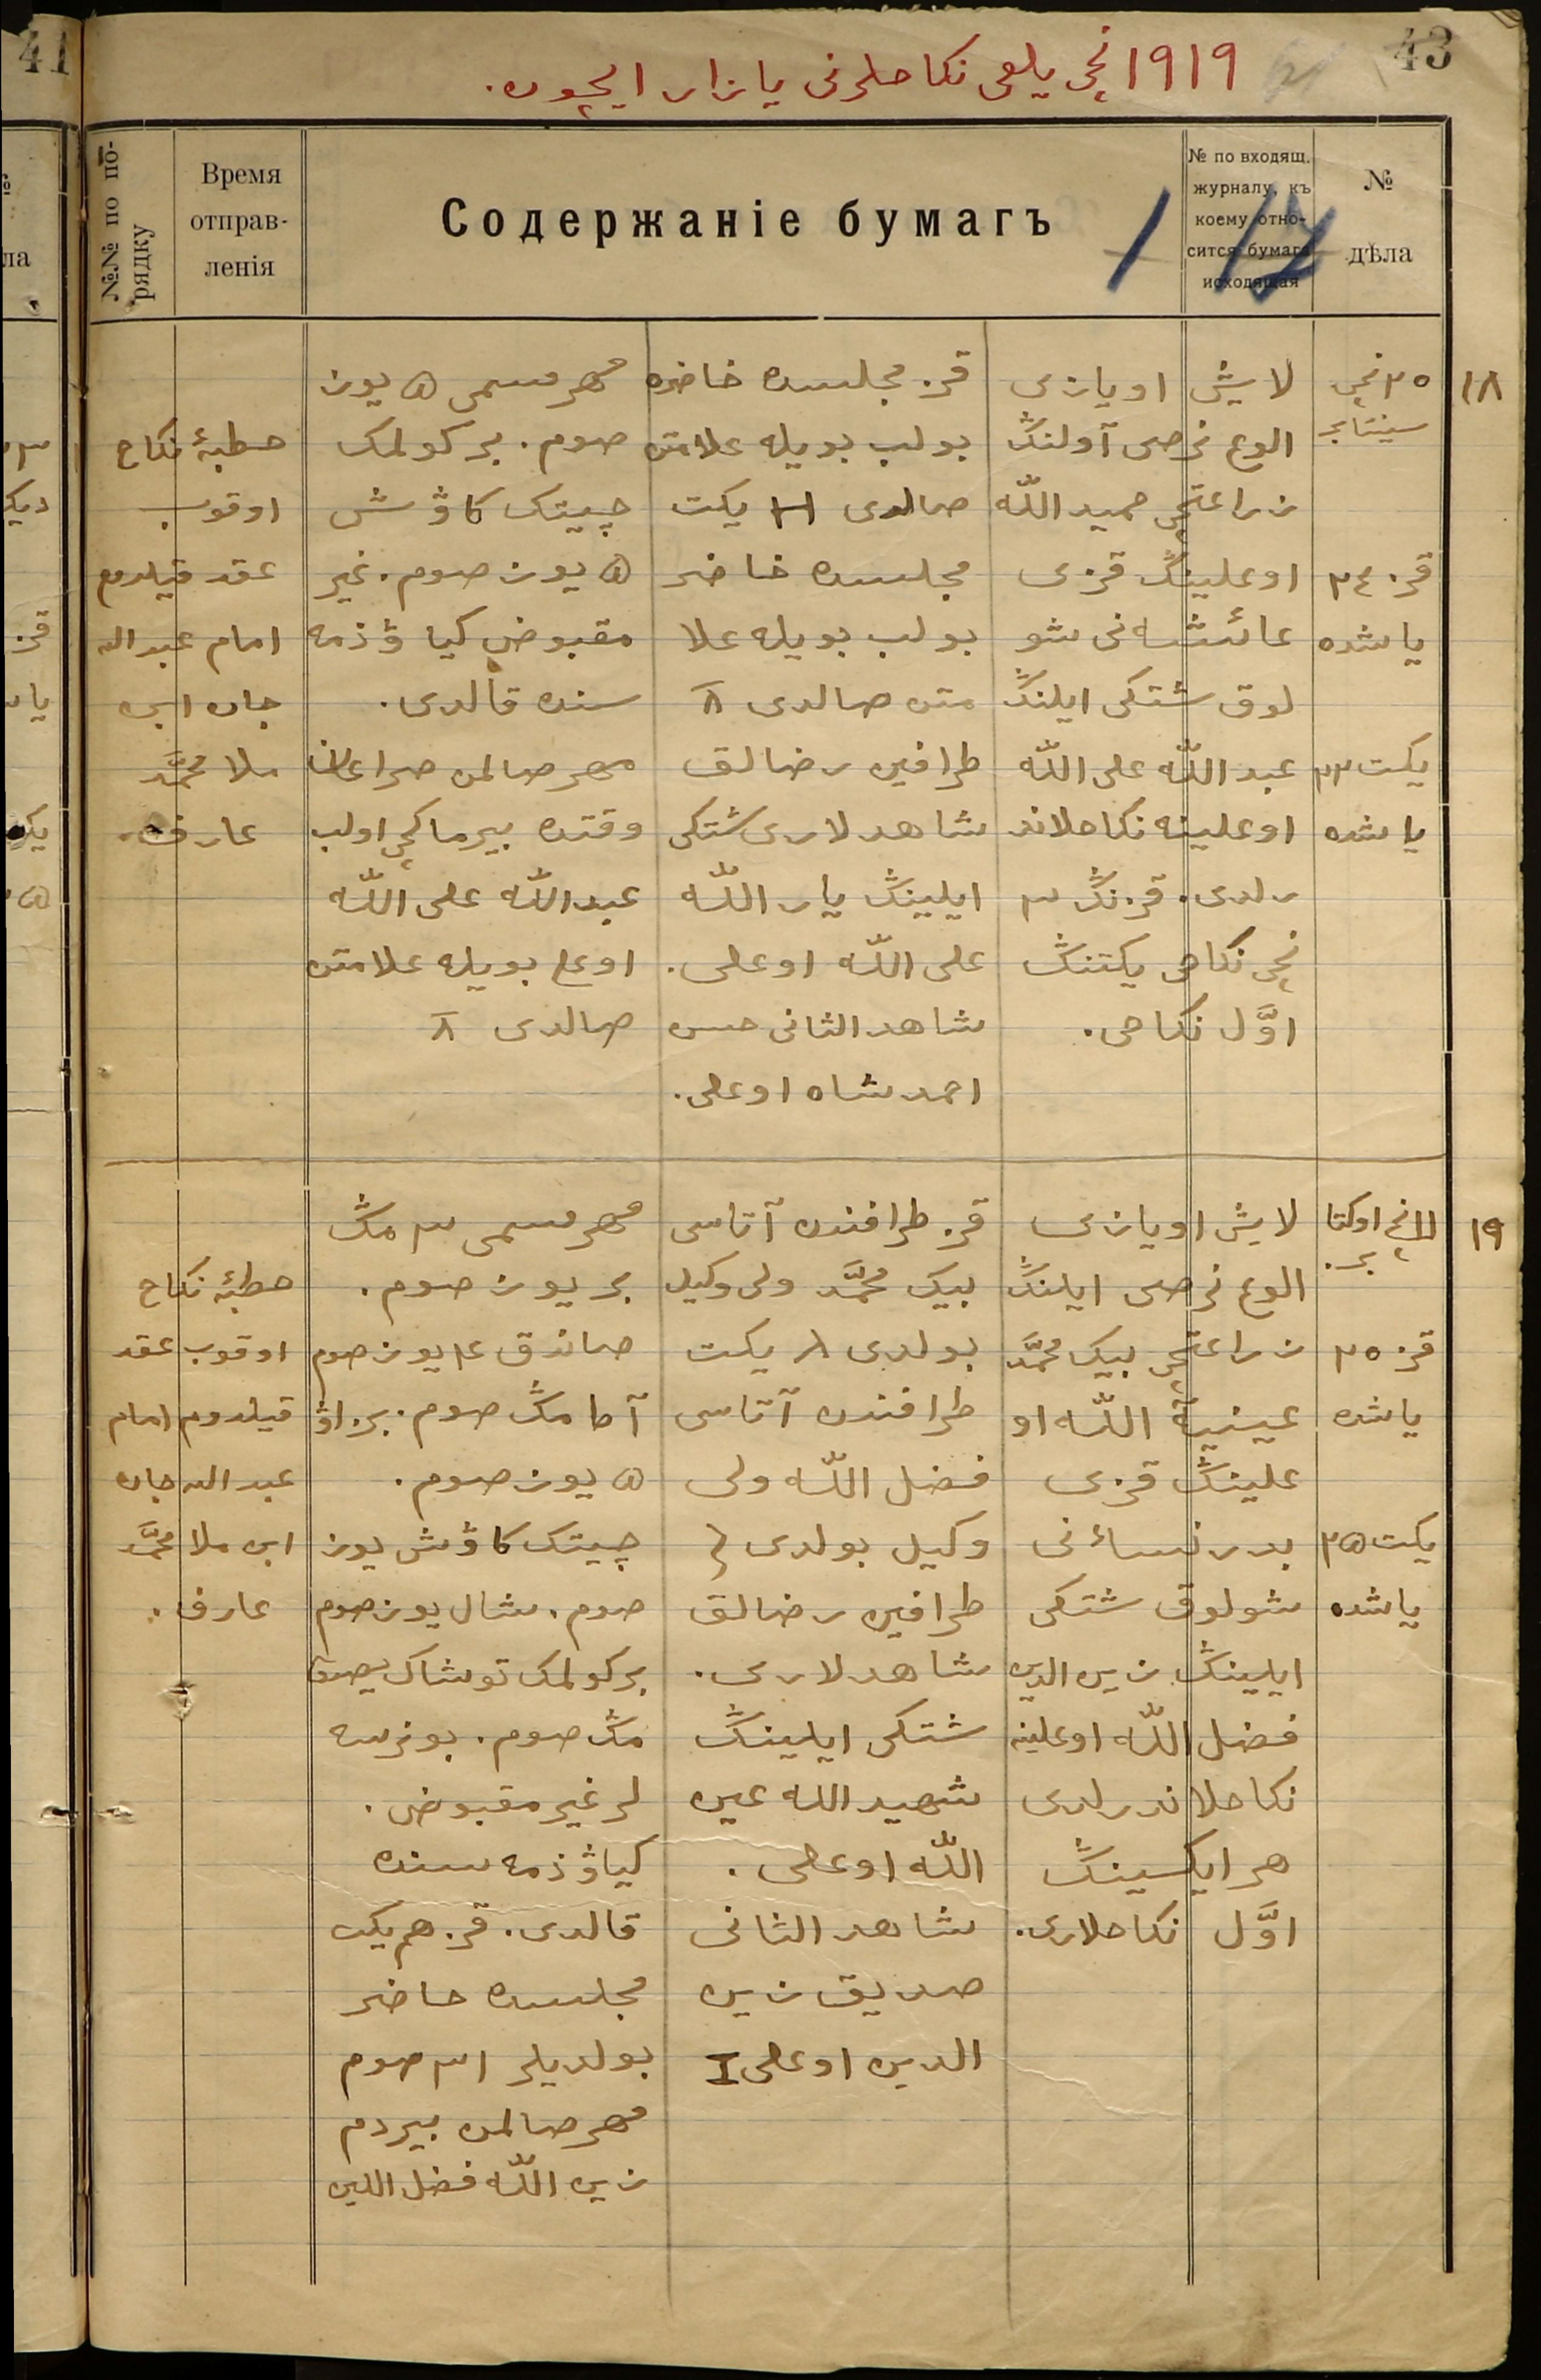 43
41
١٩١٩ نچی یلغی نكاحلرنی یازار ایچون.
№№ по по-
рядку
Время
отправ-
ленія
Содержаніе бумагъ
№ по входящ.
журналу, къ
коему отно-
сится бумага
исходящая
№
дѣла
١٨
٢٥ نچی
سینتابر
قز ٢٤
یاشده
یكت ٢٢
یاشده
لایش اویازی
الوغ نرصی آولنڭ
زراعتچی حمید اللّه
اوغلینڭ قزی
عائشه نی شو
لوق شتكی ایلنڭ
عبد اللّه علی اللّه
اوغلینه نكاحلاند
رلدی. قزنڭ ٢
نچی نكاحی یكتنڭ
اوَّل نكاحی.
قز مجلسده خاضره
بولب بویله علامتن
صالدی H یكت
مجلسده خاضر
بولب بویله علا
متن صالدی ٨
طرافین رضالق
شاهدلاری شتكی
ایلینڭ یار اللّه
علی اللّه اوغلی.
شاهد الثانی حسن
احمدشاه اوغلی.
مهر مسمی ۵ یوز
صوم. بر كولمك
چیتك كاۋش
۵ یوز صوم. غیر
مقبوض كیاۋ ذمه
سنده قالدی.
مهر صالمن صراغان
وقتده بیرماكچی اولب
عبد اللّه علی اللّه
اوغلی بویله علامتن
صالدی ٨
خطبۀ نكاح
اوقوب
عقد قیلدم
امام عبد الله
جان ابن
ملا محمَّد
عارف.
١٩
١١ نچی اوكتا
بر.
قز ٢٥
یاشده
یكت ٢۵
یاشده
لایش اویازی
الوغ نرصی ایلنڭ
زراعتچی بیك محمَّد
عینیة اللّه او
غلینڭ قزی
بدر نسائنی
شولوق شتكی
ایلینڭ زین الدین
فضل اللّه اوغلینه
نكاحلاندرلدی
هر ایكسینڭ
اوَّل نكاحلاری.
قز طرافنده آتاسی
بیك محمَّد ولی وكیل
بولدی ٨ یكت
طرافنده آتاسی
فضل اللّه ولی
وكیل بولدی
طرافین رضالق
شاهدلاری.
شتكی ایلینڭ
شهید الله عین
اللّه اوغلی.
شاهد الثانی
صدیق زین
الدین اوغلی I
مهر مسمی ٢ مڭ
بر یوز صوم.
صاندق ٤ یوز صوم
آطا مڭ صوم. بزاۋ
۵ یوز صوم.
چیتك كاۋش یوز
صوم. شال یوز صوم
بر كولمك توشاك یصدق
مڭ صوم. بو نرسه
لر غیر مقبوض.
كیاۋ ذمه سنده
قالدی. قز هم یكت
مجلسده حاضر
بولدیلر ١٢ صوم
مهر صالمن بیردم
زین اللّه فضل الدین
خطبۀ نكاح
اوقوب عقد
قیلدوم امام
عبد الله جان
ابن ملا محمَّد
عارف.